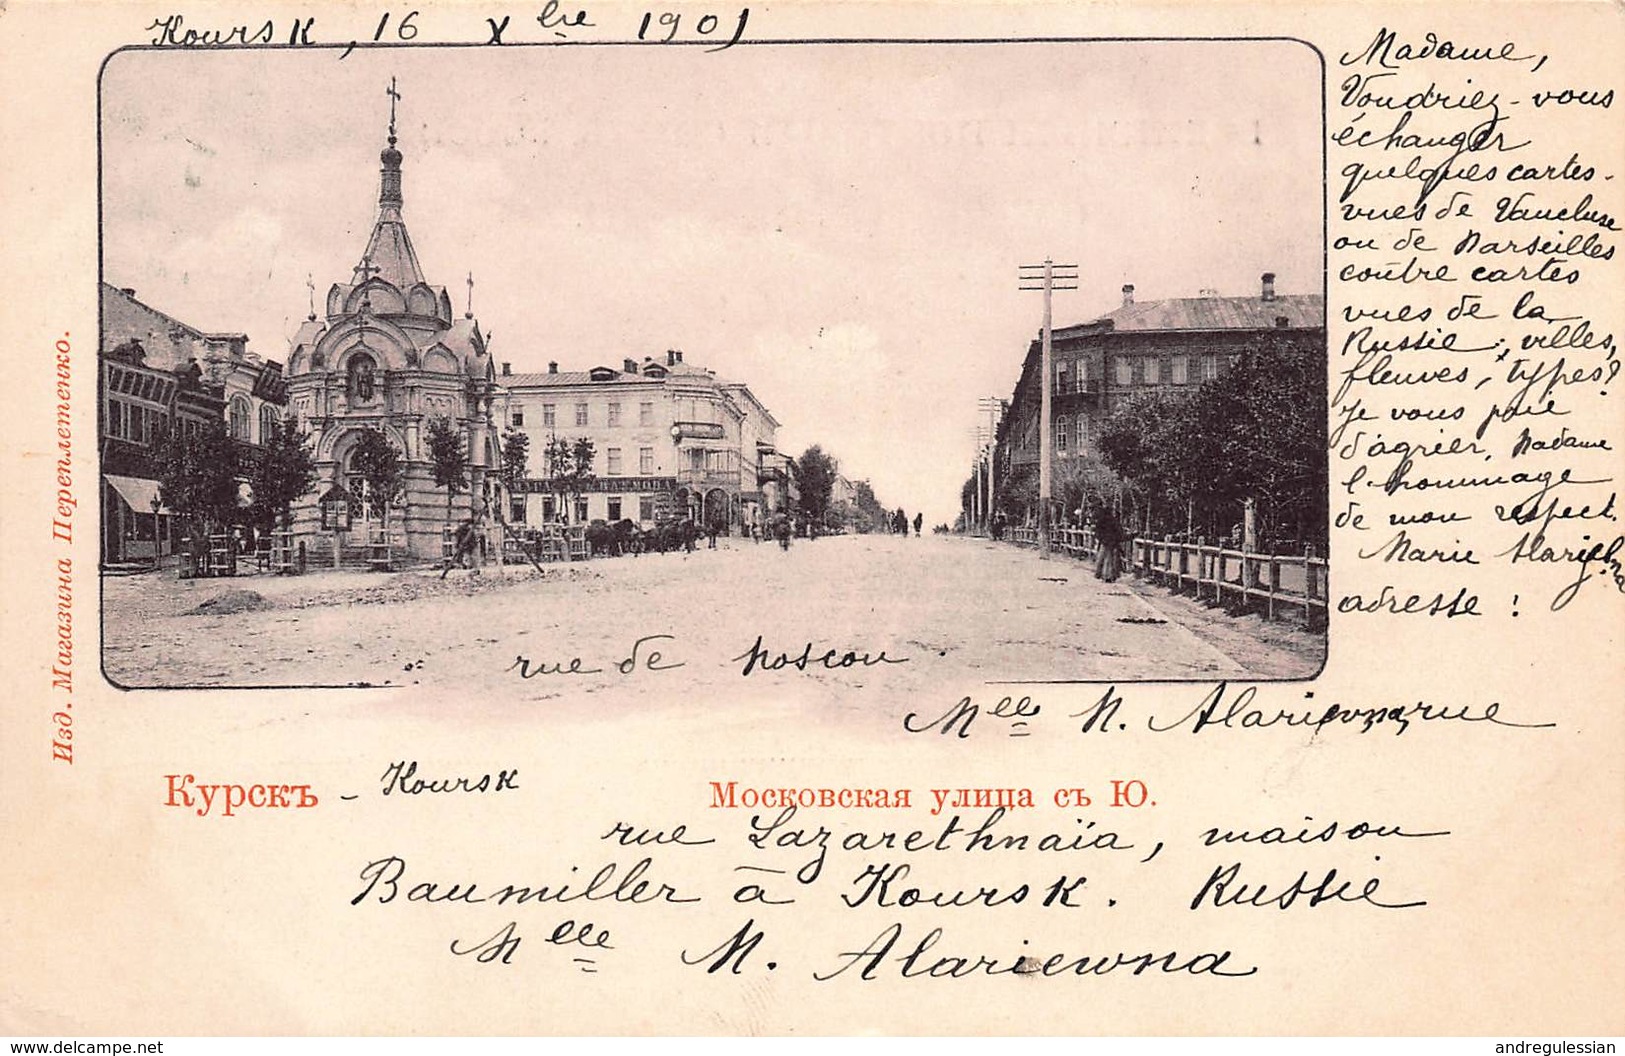 Koursk, 16 Xbre 1901
Madame,
Voudriez-vous
échanger
quelques cartes-
vues de Vaucluse
ou de Marseilles
contre cartes
vues de la
Russie: villes,
fleuves, types?
Je vous prie
d'agréer, Madame
l'hommage
de mon respect.
Marie Alariewna
adresse!
rue de Moscou.
Mlle M. Alariewna, rue
Изд. Магазина Переплетенко.
Курскъ - Koursk
Московская улица съ Ю.
rue Lazarethnaïa, maison
Baumiller à Koursk. Russie
Mlle M. Alariewna
www.delcampe.net
andregulessian